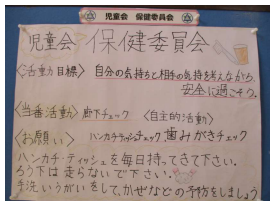 児童会 保健委員会
児童会 保健委員会
〈活動目標〉 自分の気持ちと相手の気持を考えながら、
安全に過ごそう。
〈当番活動〉 廊下チェック 〈自主的活動〉
〈お願い〉 ハンカチ・ティッシュチェック 歯みがきチェック
ハンカチ・ティッシュを毎日持ってきて下さい。
ろう下は走らないで下さい。
手洗いうがいをして、かぜなどの予防をしましょう